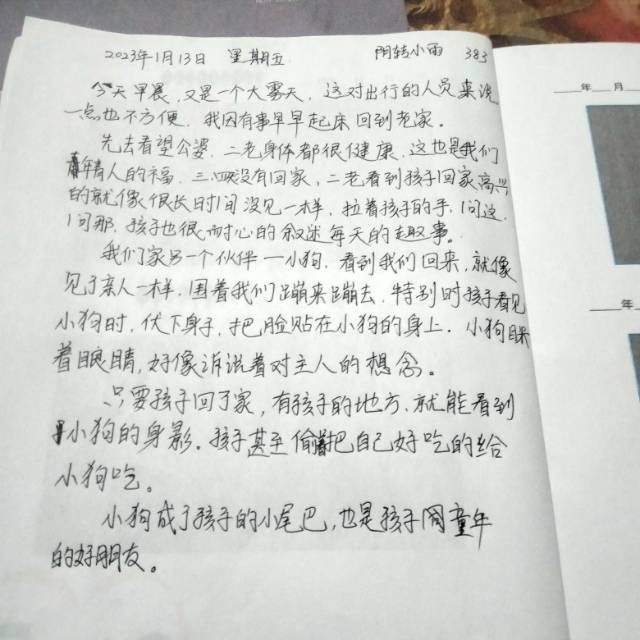 2023年1月13日 星期五 阴转小雨 383
今天早晨，又是一个大雾天，这对出行的人员来说
一点也不方便，我因有事早早起床回到老家。
先去看望公婆，二老身体都很健康，这也是我们
年青人的福，三四天没有回家，二老看到孩子回家高兴
的就像很长时间没见一样，拉着孩子的手，问这，
问那，孩子也很耐心的叙述每天的趣事。
我们家另一个伙伴一小狗，看到我们回来，就像
见了亲人一样，围着我们蹦来蹦去，特别时孩子看见
小狗时，伏下身子，把脸贴在小狗的身上。小狗眯
着眼睛，好像诉说着对主人的想念。
只要孩子回了家，有孩子的地方，就能看到
小狗的身影。孩子甚至偷偷把自己好吃的给
小狗吃。
小狗成了孩子的小尾巴，也是孩子童年
的好朋友。
年 月
年